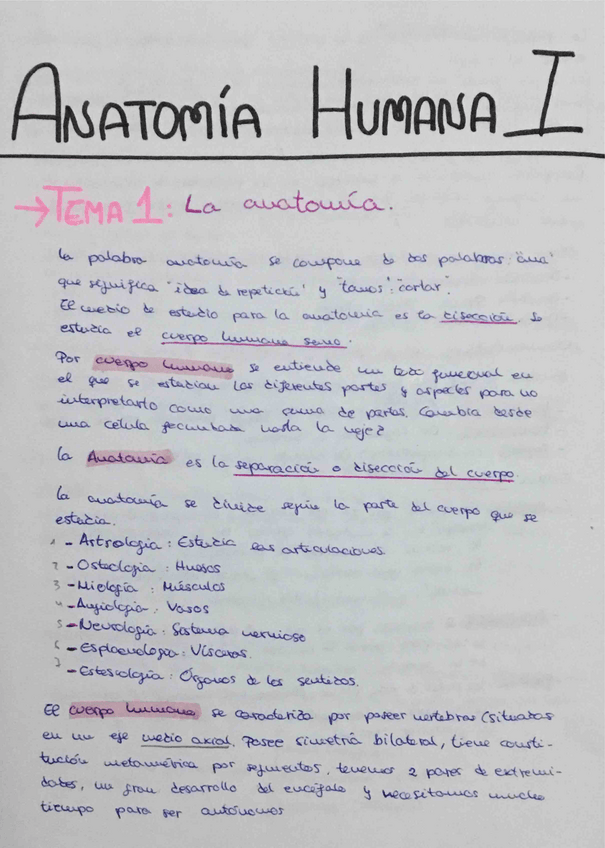 ANATOMÍA HUMANA I
→TEMA 1: La anatomía.
La palabra anatomía se compone de dos palabras: "ana"
que significa "idea de repetición" y "tomos": "cortar".
El medio de estudio para la anatomía es la disección. Se
estudia el cuerpo humano sano.
Por cuerpo humano se entiende un todo funcional en
el que se estudian las diferentes partes y aspectos para no
interpretarlo como una suma de partes. Cambia desde
una célula fecundada hasta la vejez
La Anatomía es la separación o disección del cuerpo.
La anatomía se divide según la parte del cuerpo que se
estudia.
1 - Artrología: Estudia las articulaciones.
2 - Osteología: Huesos
3 - Miología: Músculos
4 - Angiología: Vasos
5 - Neurología: Sistema nervioso
6 - Esplacnología: Vísceras.
7 - Estesiología: Órganos de los sentidos.
El cuerpo humano se caracteriza por poseer vertebras (situadas
en un eje medio axial. Posee simetría bilateral, tiene consti-
tución metamérica por segmentos, tenemos 2 pares de extremi-
dades, un gran desarrollo del encéfalo y necesitamos mucho
tiempo para ser autónomos